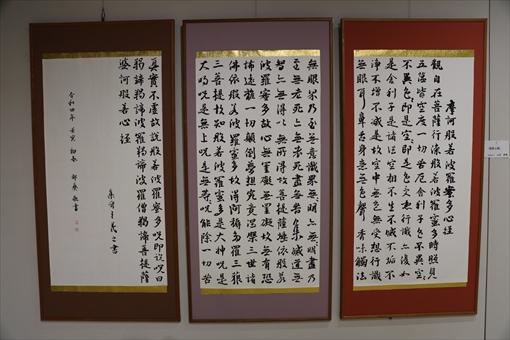 摩訶般若波羅蜜多心経
觀自在菩薩行深般若波羅蜜多時照見
五蘊皆空度一切苦厄舍利子色不異空空
不異色色即是空空即是色受想行識亦復如
是舍利子是諸法空相不生不滅不垢不
淨不増不減是故空中無色無受想行識
無眼耳鼻舌身意無色聲香味觸法
無眼界乃至無意識界無無明亦無無明盡乃
至無老死亦無老死盡無苦集滅道無
智亦無得以無所得故菩提薩埵依般若
波羅蜜多故心無罣礙無罣礙故無有恐
怖遠離一切顛倒夢想究竟涅槃三世諸
佛依般若波羅蜜多故得阿耨多羅三藐
三菩提故知般若波羅蜜多是大神呪是
大明呪是無上呪是無等等呪能除一切苦
真實不虚故説般若波羅蜜多呪即説呪曰
羯諦羯諦波羅羯諦波羅僧羯諦菩提薩
婆訶般若心経
集字王羲之書
令和四年 壬寅 初春 敬書